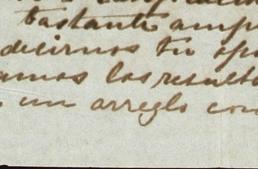 bastante amp
decirnos tu opi
amos los result
un arreglo con